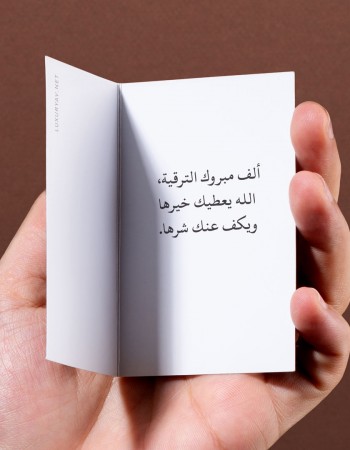 LUXURYBY.NET
ألف مبروك الترقية،
الله يعطيك خيرها
ويكف عنك شرها.